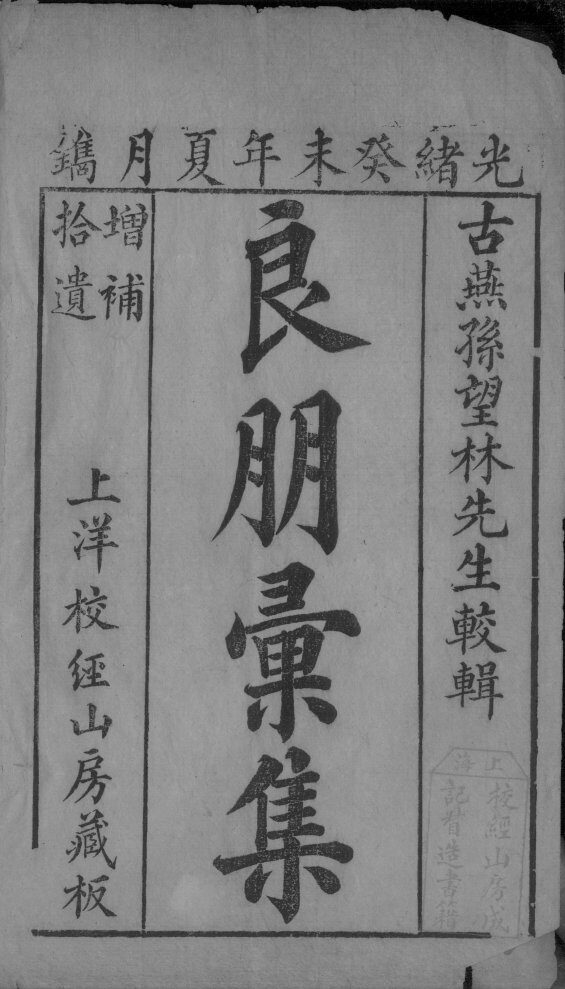 光緒癸未年夏月鐫
古燕孫望林先生較輯
良朋彙集
增補
拾遺
上洋校經山房藏板
上海
校經山房成
記督造書籍